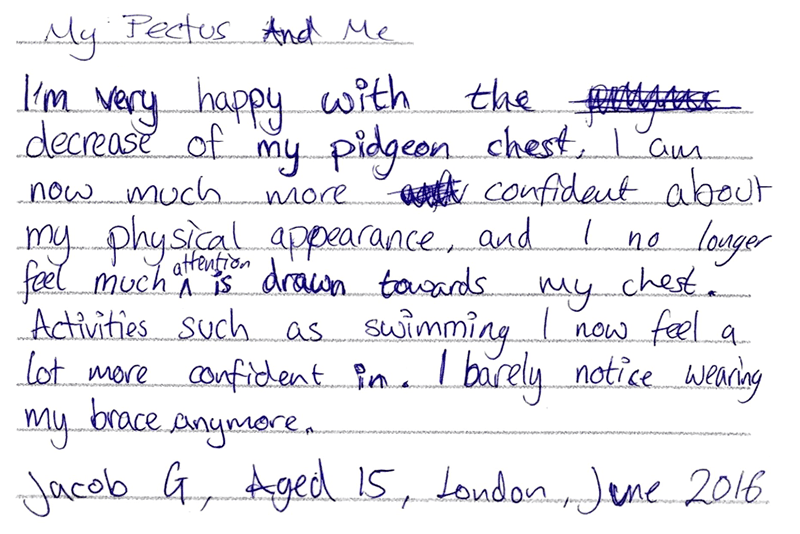 My Pectus And Me
I'm very happy with the
decrease of my pidgeon chest. I am
now much more confident about
my physical appearance, and I no longer
feel much attention is drawn towards my chest.
Activities such as swimming I now feel a
lot more confident in. I barely notice wearing
my brace anymore.
Jacob G, Aged 15, London, June 2016